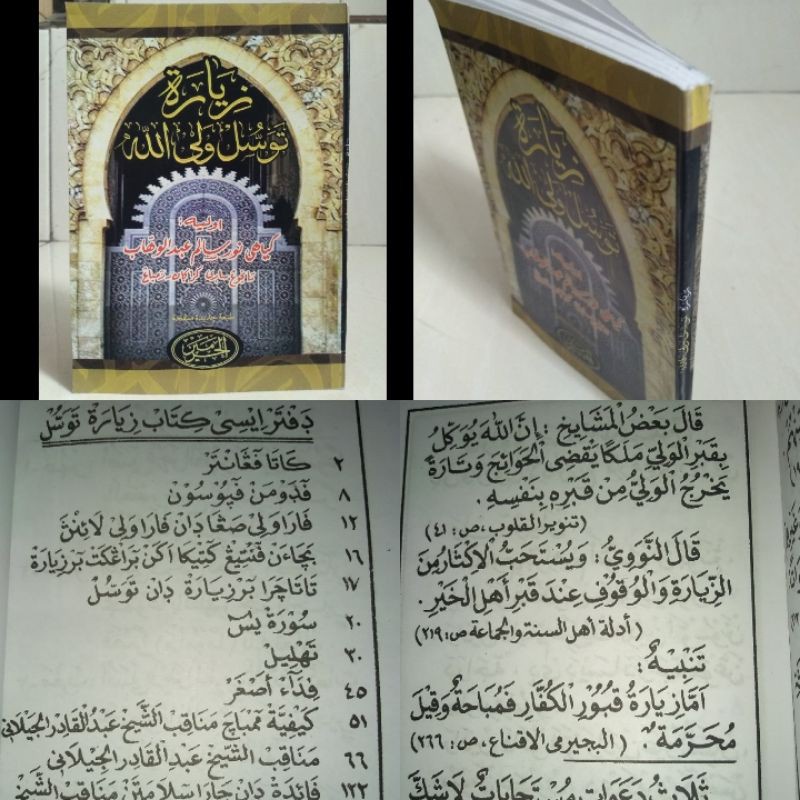 زيارة
توسل ولي الله
اوليه:
كياهي نور سالم عبد الوهاب
طبعة جديدة منقحة
الخير
زيارة
توسل ولي الله
دَفْتَرْ اِيْسِيْ كِتَابْ زِيَارَةْ تَوَسُّلْ
٢ كَاتَا فَڠَانْتَرْ
٨ فَدَوْمَنْ فَڽُوْسُوْنْ
١٢ فَارَا وَلِيْ صَڠَا دَانْ فَارَا وَلِيْ لَائِنْڽَ
١٦ بَچَاءَنْ فَنْتِيْڠْ كَتِيْكَا اَكَنْ بَرَاڠْكَتْ بَرْزِيَارَةْ
١٧ تَاتَاچَرَا بَرْزِيَارَةْ دَانْ تَوَسُّلْ
٢٠ سُوْرَةْ يٰسٓ
٣٠ تَهْلِيْلْ
٤٥ فِدَاءْ اَصْغَرْ
٥١ كَيْفِيَّةْ مَمْبَاچَ مَنَاقِبْ الشَّيْخْ عَبْدُ الْقَادِرْ الْجِيْلَانِيْ
٦٦ مَنَاقِبْ الشَّيْخْ عَبْدُ الْقَادِرْ الْجِيْلَانِيْ
١٢٢ فَائِدَةْ دَانْ چَارَا سَلَامَتَنْ مَنَاقِبْ الشَّيْخْ
قَالَ بَعْضُ الْمَشَايِخِ : إِنَّ اللهَ يُوَكِّلُ
بِقَبْرِ الْوَلِيِّ مَلَكًا يَقْضِى الْحَوَائِجَ وَتَارَةً
يَخْرُجُ الْوَلِيُّ مِنْ قَبْرِهِ بِنَفْسِهِ .
(تنوير القلوب، ص: ٤١)
قَالَ النَّوَوِيُّ : وَيُسْتَحَبُّ الْاِكْثَارُ مِنَ
الزِّيَارَةِ وَالْوُقُوْفِ عِنْدَ قَبْرِ أَهْلِ الْخَيْرِ .
(أدلة أهل السنة والجماعة ص: ٢١٩)
تَنْبِيْهٌ :
اَمَّا زِيَارَةُ قُبُوْرِ الْكُفَّارِ فَمُبَاحَةٌ وَقِيْلَ
مُحَرَّمَةٌ . (البجيرمى الاقناع، ص: ٢٦٦)
ثَلَاثُ دَعَوَاتٍ مُسْتَجَابَاتٌ لَاشَكَّ